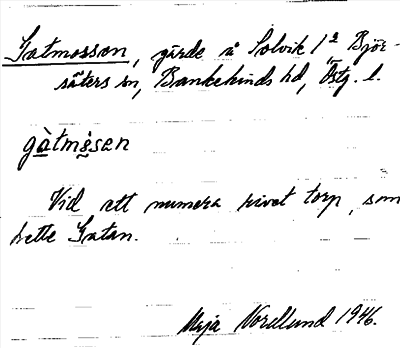 Gatmossen, gärde å Solvik 1² Björ-
säters sn, Bankekinds hd, Östg. l.
gàtmå̀sen
Vid ett numera rivet torp, som
hette Gatan.
Maja Nordlund 1946.